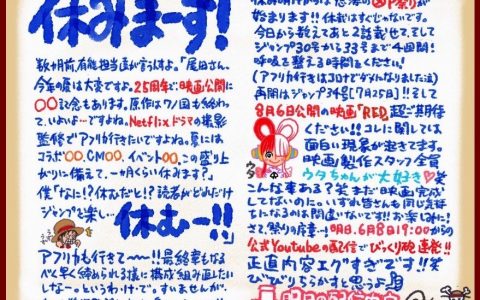 休みまーす!
数ヶ月前、有能担当編が言うすよ。「尾田さん、
今年の夏は大変ですよ。25周年で映画公開に
〇〇記念もあります。原作はワノ国も終わっ
て、いよいよ…ですよね。Netflixドラマの撮影
監修でアフリカ行きたいですよね。夏には
コラボ〇〇、CM〇〇、イベント〇〇、この盛り上
がりに備えて、一月くらい休みます?」
僕「なに!?休むだと!?読者がどれだけ
ジャンプを楽し…休むーー!!
アフリカも行きて〜〜!!最終章もなる
べく早く締められる様に構成組み直したい
しなー。というわけで、すいませんが、
始まります!!休載はすぐじゃないです。
今日から数えてあと2話載せて、そして
ジャンプ30号から33号まで4週間!
呼吸を整える時間をください!
(アフリカ行きはコロナでダメになりました泣)
再開はジャンプ34号[7月25日]!!そして
8月6日公開の映画「RED」超ご期待
ください!!コレに関しては
面白い現象が起きてます。
映画製作スタッフ全員
ウタちゃんが大好き♡笑
ウタ
こんな事ある?笑 まだ映画完成
してないのに。いずれ皆さんも同じ気持
ちになるのは間違いないです!!お楽しみに!
さて、祭りの序章…!明日、6月8日19:00から
公式Youtubeの配信でびっくり砲連発!!
正直内容エグすぎです!!笑
びびりちらかすと思うよ